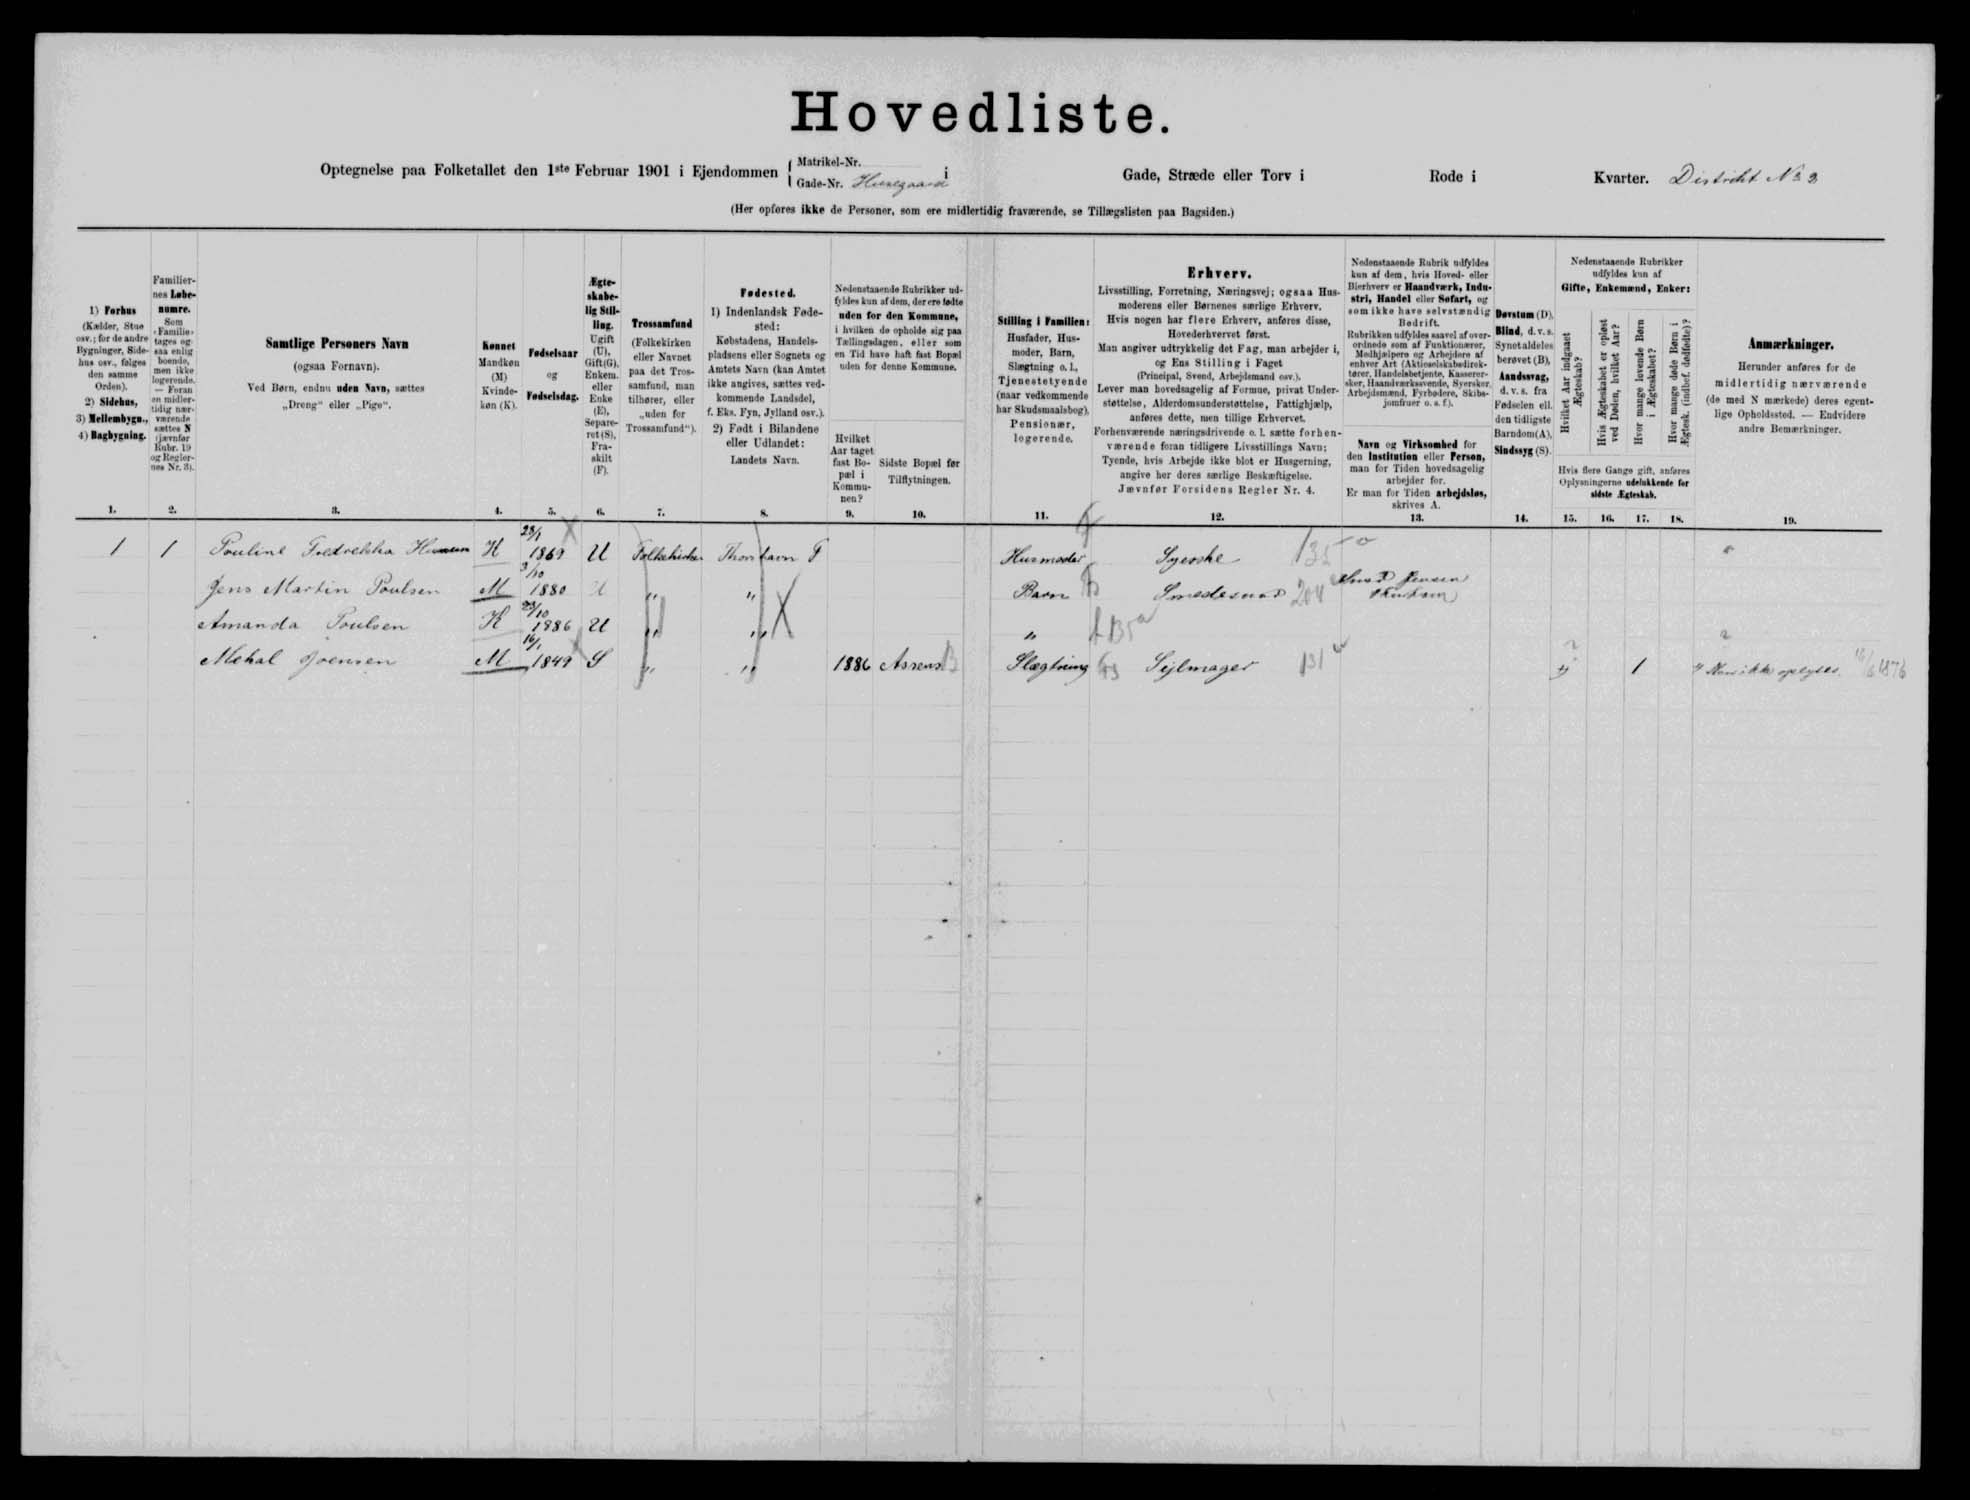 Hovedliste.
Optegnelse paa Folketallet den 1ste Februar 1901 i Ejendommen { Matrikel-Nr. Gade-Nr. i Gade, Stræde eller Torv i Rode i Kvarter. Distrikt No 2
(Her opføres ikke de Personer, som ere midlertidig fraværende, se Tillægslisten paa Bagsiden.)
1) Forhus
(Kælder, Stue
osv.; for de andre
Bygninger, Side-
hus osv., følges
den samme
Orden).
2) Sidehus,
3) Mellembygn.,
4) Bagbygning.
1.
Familier-
nes Løbe-
numre.
Som
"Familie"
tages og-
saa enlig
boende,
men ikke
logerende.
— Foran
en midler-
tidig nær-
værende
sættes N
(jævnfør
Rubr. 19
og Regler-
nes Nr. 3).
2.
Samtlige Personers Navn
(ogsaa Fornavn).
Ved Børn, endnu uden Navn, sættes
„Dreng“ eller „Pige“.
3.
Kønnet
Mandkøn
(M)
Kvinde-
køn (K).
4.
Fødselsaar
og
Fødselsdag.
5.
Ægte-
skabe-
lig Stil-
ling.
Ugift
(U),
Gift(G),
Enkem.
eller
Enke
(E),
Separe-
ret (S),
Fra-
skilt
(F).
6.
Trossamfund
(Folkekirken
eller Navnet
paa det Tros-
samfund, man
tilhører, eller
„uden for
Trossamfund“).
7.
Fødested.
1) Indenlandsk Føde-
sted:
Købstadens, Handels-
pladsens eller Sognets og
Amtets Navn (kan Amtet
ikke angives, sættes ved-
kommende Landsdel,
f. Eks. Fyn, Jylland osv.).
2) Født i Bilandene
eller Udlandet:
Landets Navn.
8.
Nedenstaaende Rubrikker ud-
fyldes kun af dem, der ere fødte
uden for den Kommune,
i hvilken de opholde sig paa
Tællingsdagen, eller som
en Tid have haft fast Bopæl
uden for denne Kommune.
Hvilket
Aar taget
fast Bo-
pæl i
Kommu-
nen?
9.
Sidste Bopæl før
Tilflytningen.
10.
Stilling i Familien:
Husfader, Hus-
moder, Barn,
Slægtning o. l.,
Tjenestetyende
(naar vedkommende
har Skudsmaalsbog),
Pensionær,
logerende.
11.
Erhverv.
Livsstilling, Forretning, Næringsvej; ogsaa Hus-
moderens eller Børnenes særlige Erhverv.
Hvis nogen har flere Erhverv, anføres disse,
Hovederhvervet først.
Man angiver udtrykkelig det Fag, man arbejder i,
og Ens Stilling i Faget
(Principal, Svend, Arbejdsmand osv.).
Lever man hovedsagelig af Formue, privat Under-
støttelse, Alderdomsunderstøttelse, Fattighjælp,
anføres dette, men tillige Erhvervet.
Forhenværende næringsdrivende o. l. sætte forhen-
værende foran tidligere Livsstillings Navn;
Tyende, hvis Arbejde ikke blot er Husgerning,
angive her deres særlige Beskæftigelse.
Jævnfør Forsidens Regler Nr. 4.
12.
Nedenstaaende Rubrik udfyldes
kun af dem, hvis Hoved- eller
Bierhverv er Haandværk, Indu-
stri, Handel eller Søfart, og
som ikke have selvstændig
Bedrift.
Rubrikken udfyldes saavel af over-
ordnede som af Funktionærer,
Medhjælpere og Arbejdere af
enhver Art (Aktieselskabsdirek-
tører, Handelsbetjente, Kasserer-
sker, Haandværkssvende, Syersker,
Arbejdsmænd, Fyrbødere, Skibs-
jomfruer o. s. f.).
Navn og Virksomhed for
den Institution eller Person,
man for Tiden hovedsagelig
arbejder for.
Er man for Tiden arbejdsløs,
skrives A.
13.
Døvstum (D),
Blind, d. v. s.
Synet aldeles
berøvet (B),
Aandssvag,
d. v. s. fra
Fødselen ell.
den tidligste
Barndom(A),
Sindssyg (S).
14.
Nedenstaaende Rubrikker
udfyldes kun af
Gifte, Enkemænd, Enker:
Hvilket Aar indgaaet
Ægteskab?
Hvis Ægteskabet er opløst
ved Døden, hvilket Aar?
Hvor mange levende Børn
i Ægteskabet?
Hvor mange døde Børn i
Ægtesk. (indbef. dødfødte)?
Hvis flere Gange gift, anføres
Oplysningerne udelukkende for
sidste Ægteskab.
15. 16. 17. 18.
Anmærkninger.
Herunder anføres for de
midlertidig nærværende
(de med N mærkede) deres egent-
lige Opholdssted. — Endvidere
andre Bemærkninger.
19.
1 1 Pauline Fredrekka K 28/1 1869 U Folkekirken Thorshavn Husmoder Syerske 135
Jens Martin Poulsen M 3/10 1880 U „ „ Barn Smedesvend 204
Amanda Poulsen K 23/10 1886 U „ „ „ 135
Mekal Joensen M 16/1 1849 S „ „ 1886 Assens Slægtning Sejlmager 131 1 Kan ikke oplyses. 1876